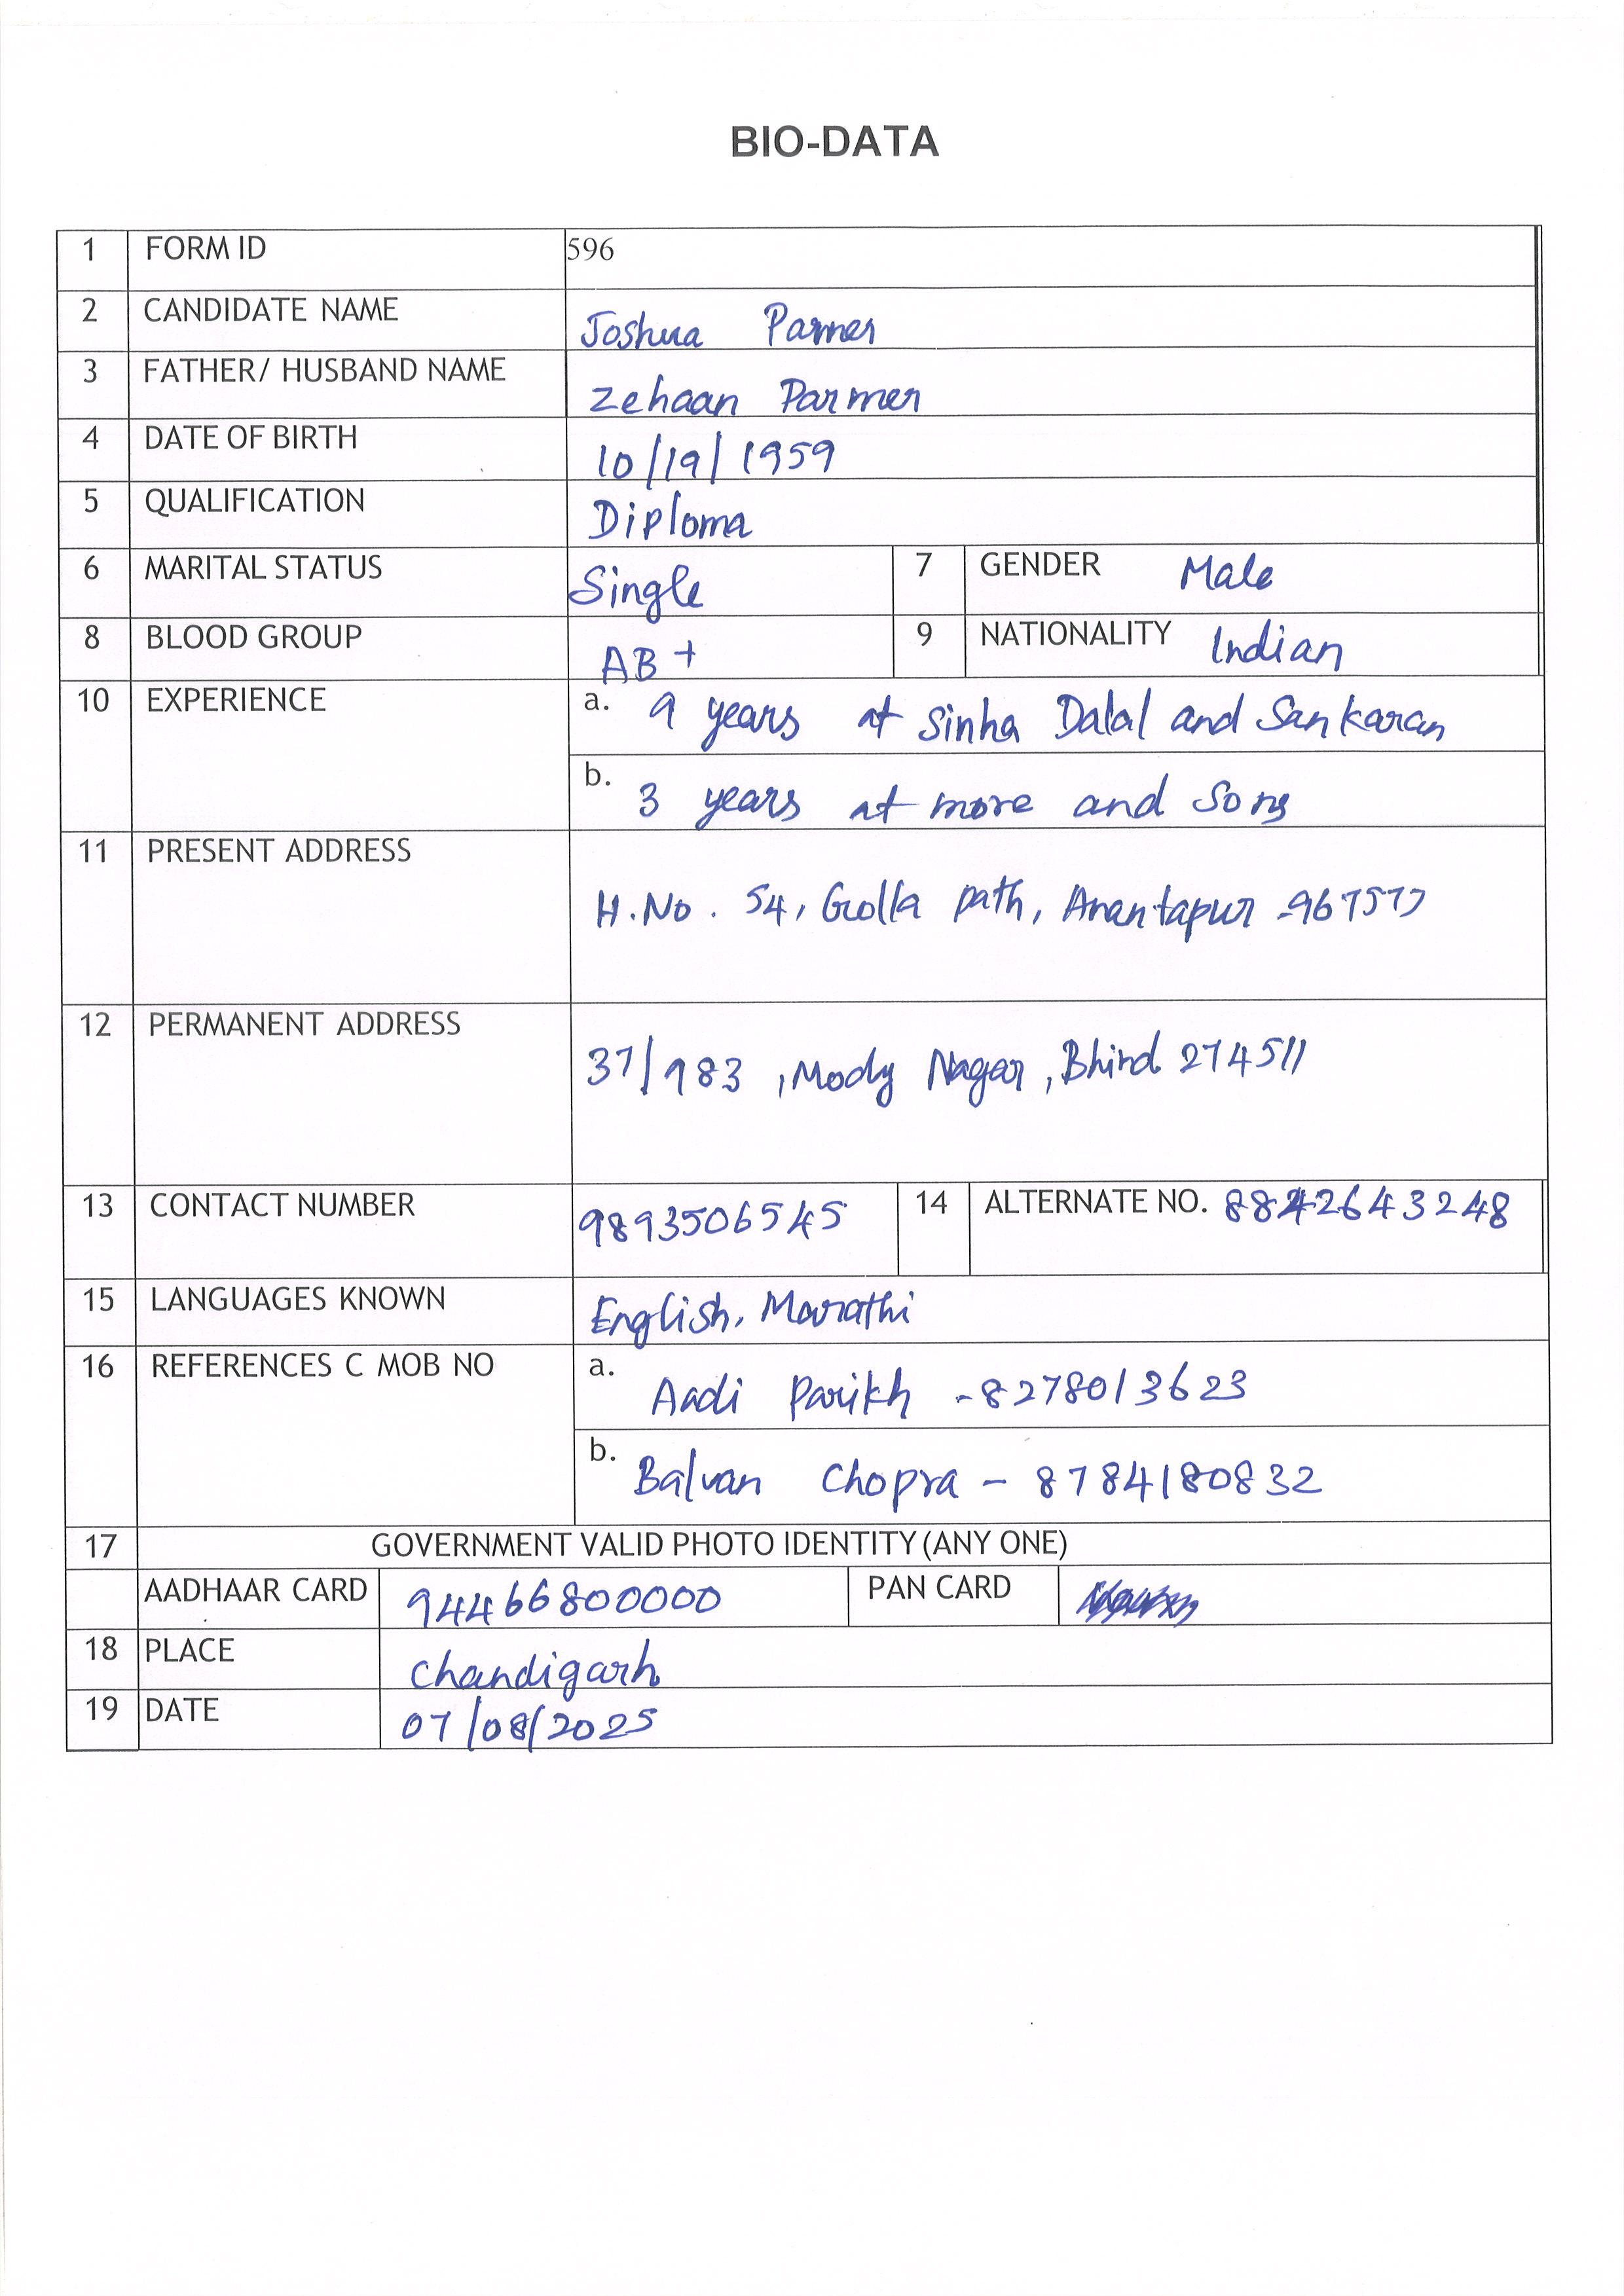 BIO-DATA
1 FORM ID 596
2 CANDIDATE NAME Joshua Parmer
3 FATHER/ HUSBAND NAME Zehaan Parmer
4 DATE OF BIRTH 10/19/1959
5 QUALIFICATION Diploma
6 MARITAL STATUS Single 7 GENDER Male
8 BLOOD GROUP AB+ 9 NATIONALITY Indian
10 EXPERIENCE a. 9 years at Sinha Dalal and Sankaran
b. 3 years at more and Sons
11 PRESENT ADDRESS H.No. 54, Golla path, Anantapur -967577
12 PERMANENT ADDRESS 37/983, Mody Nagar, Bhind 274511
13 CONTACT NUMBER 9893506545 14 ALTERNATE NO. 8842643248
15 LANGUAGES KNOWN English, Marathi
16 REFERENCES C MOB NO a. Aadi Parikh - 8278013623
b. Balvan Chopra - 8784180832
17 GOVERNMENT VALID PHOTO IDENTITY (ANY ONE)
AADHAAR CARD 94466800000 PAN CARD
18 PLACE Chandigarh
19 DATE 07/08/2025